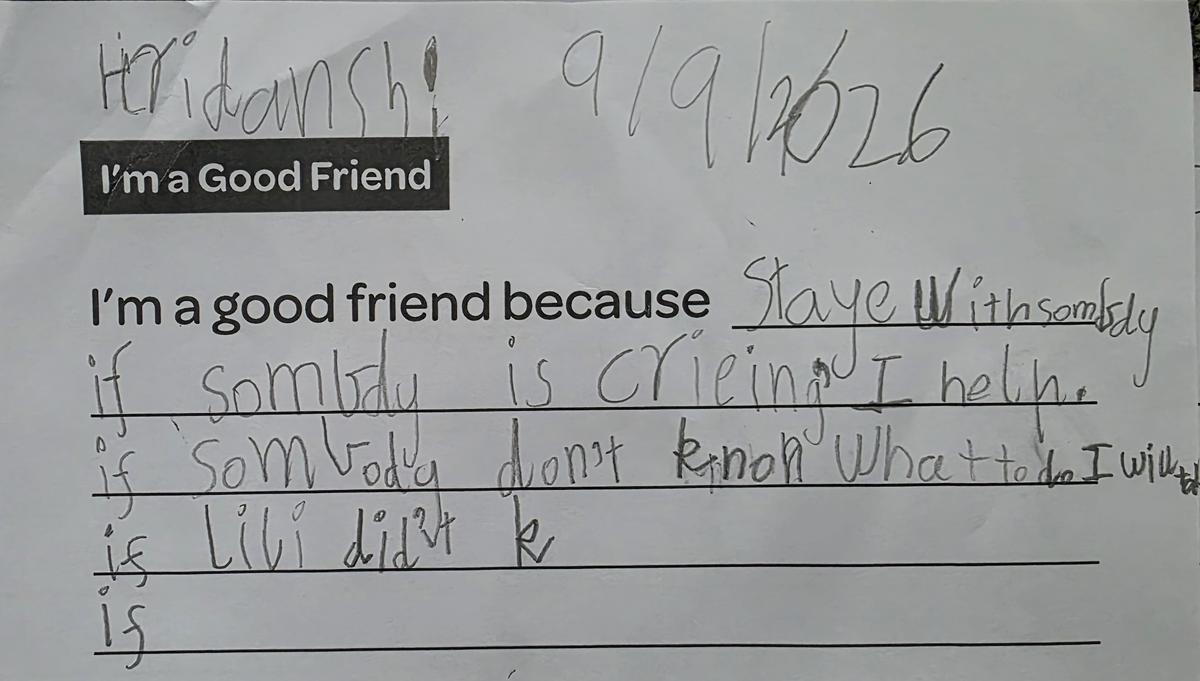 Hridansh! 9/9/2026
I'm a Good Friend
I'm a good friend because Staye With sombdy
if sombdy is crieing I help.
if sombody don't know What to do I will
if Lili did't k
if